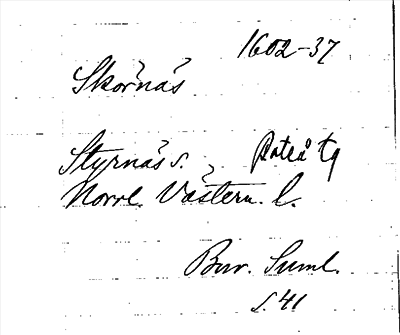 1602-37
Skornäs
Styrnäs s. Boteå tg
Norrl. Västern. l.
Bur. Suml.
s. 41